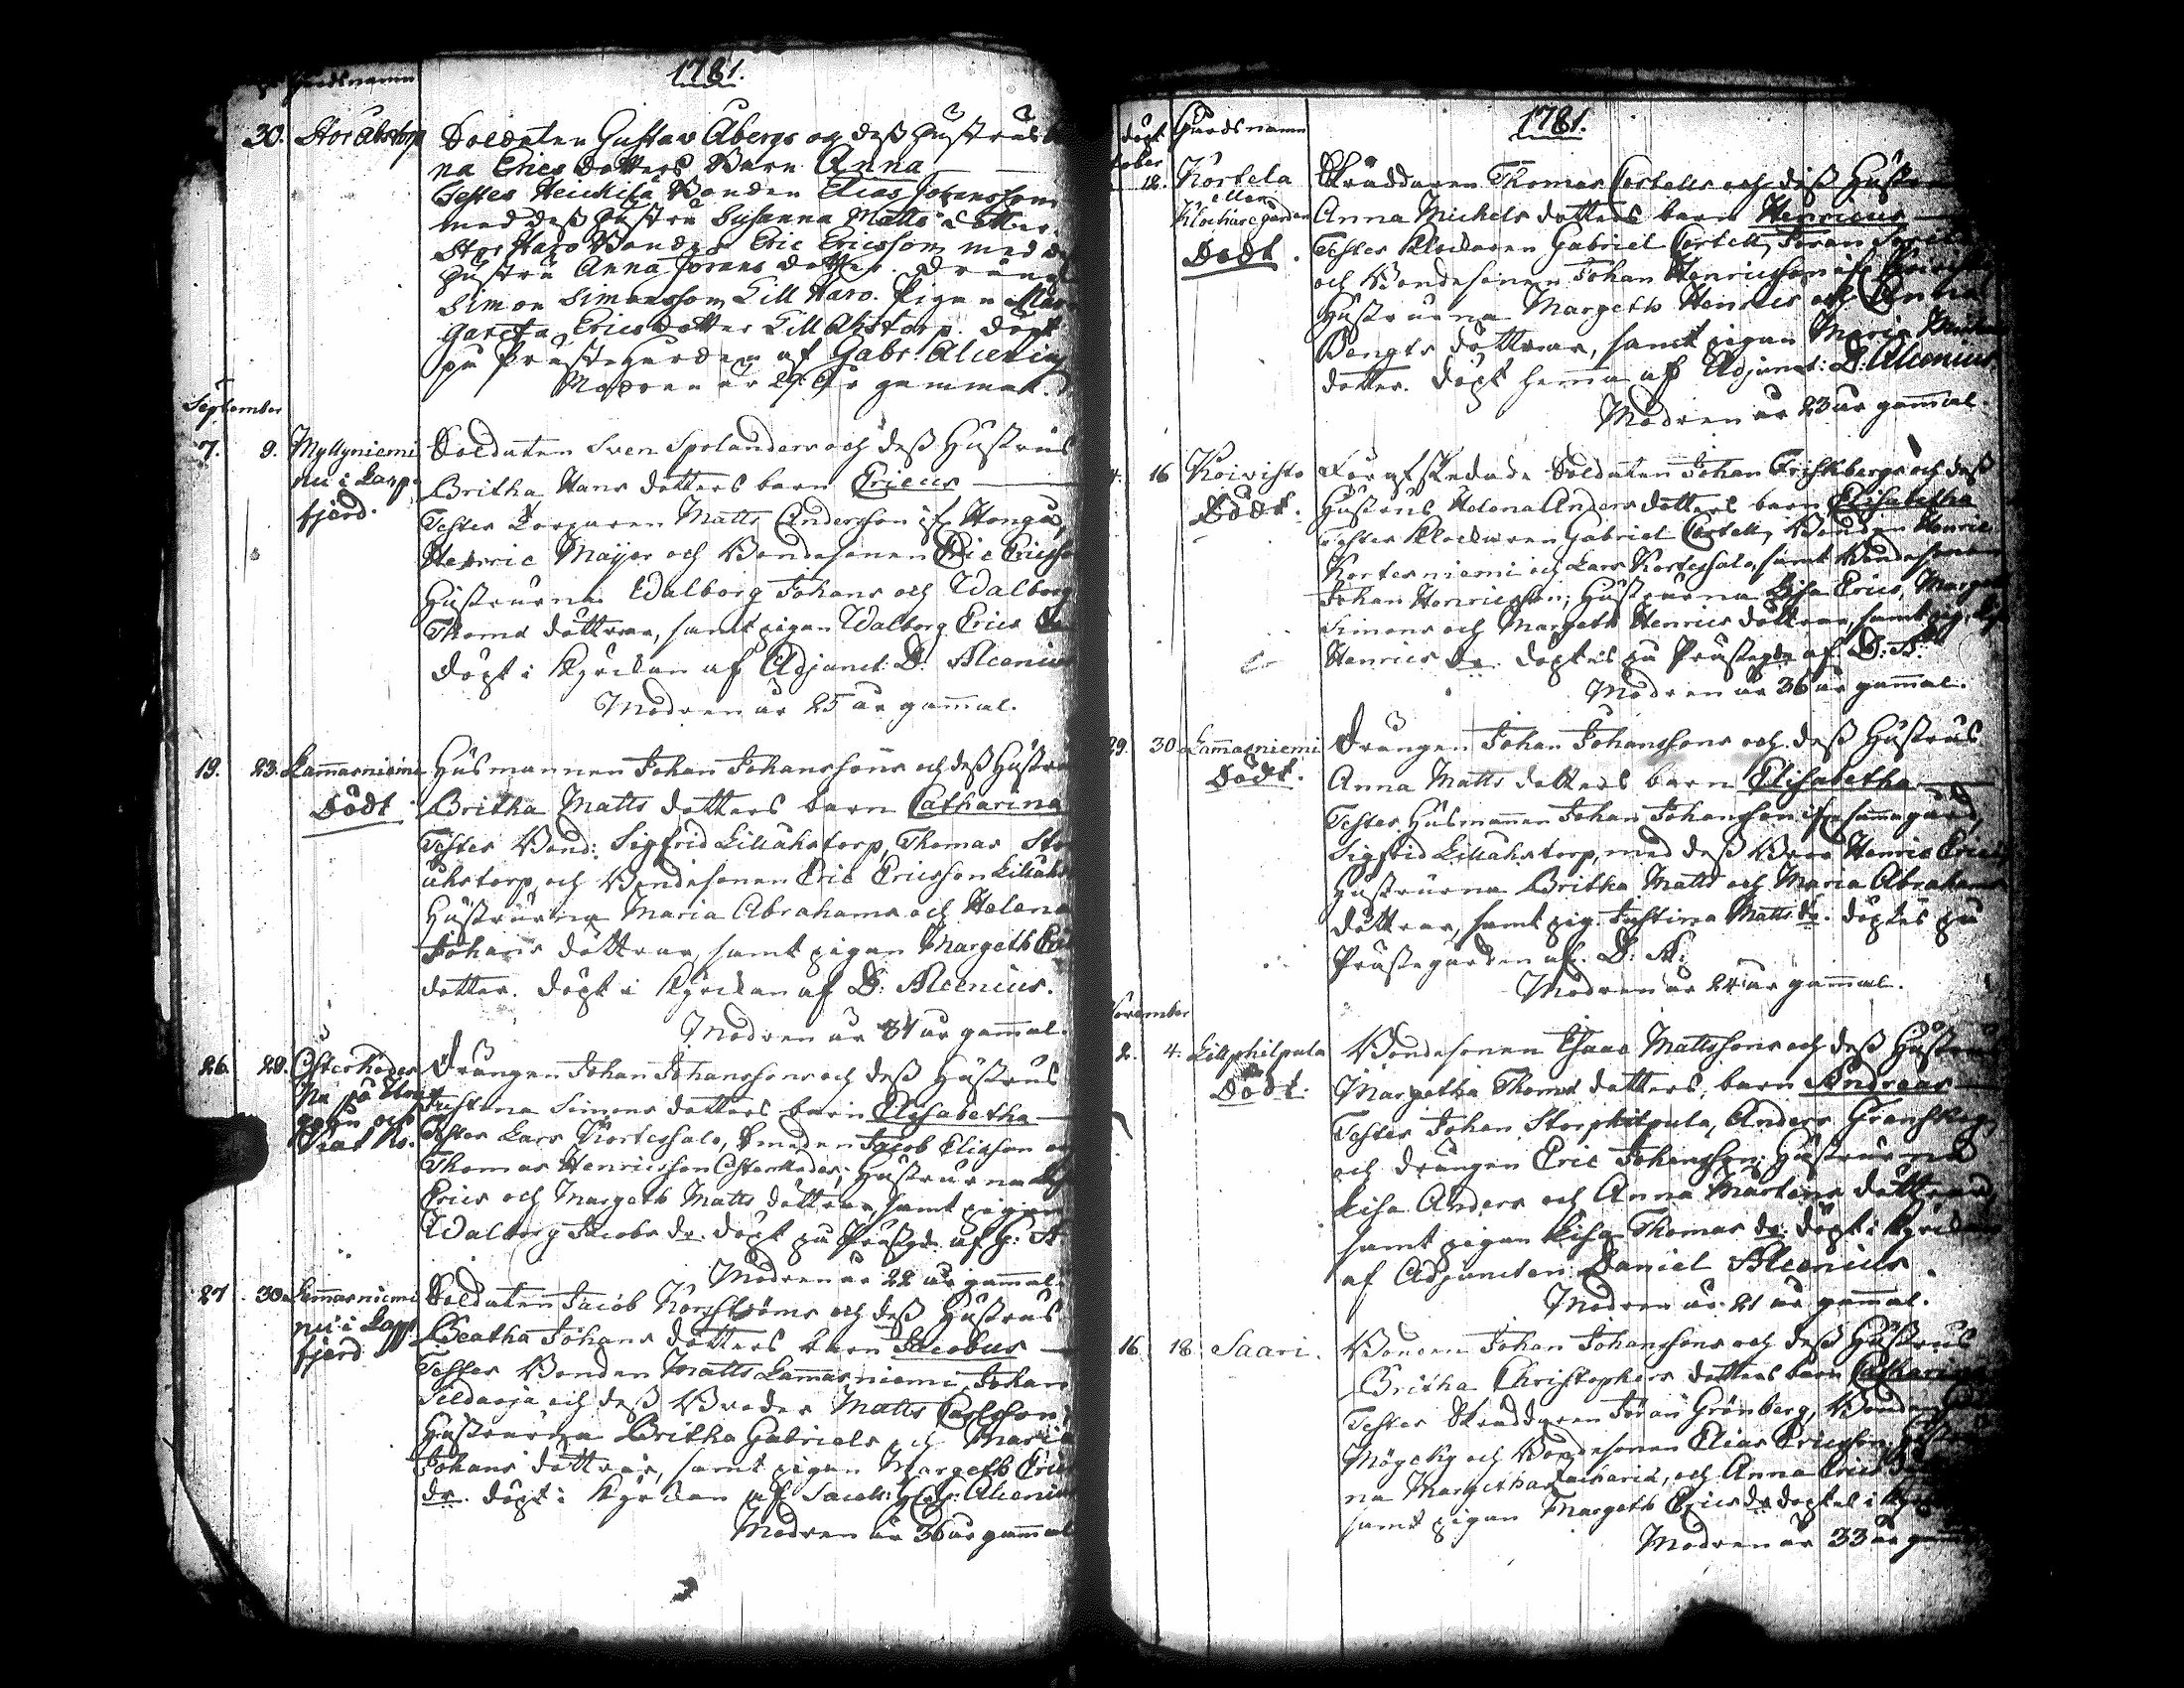 Gårdsnamn
1781.
30. Stor Åbstorp Soldaten Gustav Åbergs og deß Hustrus
na Erics dotters Barn Anna
Testes Heickilä Bonden Elias Joranssom
med deß Hustru Susanna Matts dotter.
Stor Haro Bonden Eric Ericssom med
Hustru Anna Jorans dotter. Dräng
Simon Simonssom Lill Haro. Pigan Mar
gareta Ericsdotter Lill Åbstorp. Döpt
på Prästegården af Gabr: Alcenius
Modren är 29 år gammal.
September
7. 9. Myllyniemi Soldaten Sven Spolanders och deß Hustrus
nu i Lapp Britha Hans dotters barn Ericus
fjerd. Testes Torparen Matts Andersson if. Honga,
Henric Majjor och Bondesonen Eric Ericsso
Hustrurna Walborg Johans och Walborg
Thomæ döttrar, samt pigan Walborg Erics
Döpt i Kyrckan af Adjunct: D: Alcenius
Modren är 25 år gammal.
19. 23. Lammasniemi Husmannen Johan Johanssons och deß Hustru
Dödt. Britha Matts dotters barn Catharina
Testes Bond: Sigfrid Lillåhstorp, Thomas Sto
åhstorp och Bondesonen Eric Ericsson Lillåhs
Hustrurna Maria Abrahams och Helena
Johans döttrar, samt pigan Margeth Eri
dotter. Döpt i Kyrckan af D: Alcenius.
Modren är 31 år gammal.
26. 28. Österkoder Drängen Johan Johanssons och deß Hustrus
Nu på Justina Simons dotters barn Elisabetha
Testes Lars Kortessalo, Smeden Jacob Eliasson
Thomas Henricsson Österkoder; Hustrurna
Erics och Margeth Matts döttrar, samt pigan
Walborg Jacobs dr. Döpt på Prästgn. af G: A
Modren är 22 år gammal.
27. 30. Lammasniemi Soldaten Jacob Korsströms och deß Hustrus
nu i Lapp Beatha Johans dotters barn Jacobus
fjerd Testes Bonden Matts Lammasniemi, Johan
Sildaoja och deß Broder Matts Carlsson;
Hustrurna Britha Gabriels och Maria
Johans döttrar, samt pigan Margeth Erics
dr. Döpt i Kyrckan af Alcenius
Modren är 36 år gammal
Döpt Gårdsnamn
1781.
tober
12. Kortela Skräddaren Thomas Cortells och deß Hustru
eller Anna Michels dotters barn Henricus
Klockaregården Testes Klockaren Gabriel Cortell, Joran
Dödt. och Bondesonen Johan Henricsson
Hustrurna Margeth Henrics och Anna
Bengts döttrar, samt pigan Maria
dotter. Döpt hema af Adjunct: D: Alcenius.
Modren är 23 år gammal.
16 Koivisto Förafskedade Soldaten Johan Friskbergs och deß
Dödt. Hustrus Helena Anders dotters barn Elisabetha
Testes Klockaren Gabriel Cortell, Bonden Henric
Kortesniemi och Lars Kortessalo, samt Bondesonen
Johan Henricsson; Hustrurna Lisa Erics, Marga
Simons och Margeth Henrics döttrar, samt pig.
Henrics dr. Döptes på Prästegdn af D: A:
Modren är 36 år gammal.
29. 30. Lammasniemi Drängen Johan Johanssons och deß Hustrus
Dödt. Anna Matts dotters barn Elisabetha
Testes Husmannen Johan Johansson if. samma gård,
Sigfrid Lillåhstorp, med deß Bror Henric Erics
Hustrurna Britha Matts och Maria Abrahams
döttrar, samt pig. Justina Matts dr. Döptes på
Prästegården af D: A:
Modren är 24 år gammal.
November
2. 4. Lillphilpula Bondesonen Isaac Mattssons och deß Hustrus
Dödt. Margetha Thomæ dotters, barn Andreas
Testes Johan Storphilpula, Anders
och Drängen Eric Johansson; Hustrurna
Lisa Anders och Anna Mårtens döttrar,
samt pigan Lisa Thomas dr. Döpt i Kyrckan
af Adjuncten Daniel Alcenius.
Modren är 21 år gammal.
16. 18. Saari. Bonden Johan Johanssons och deß Hustrus
Britha Christophers dotters barn Catharina
Testes Skräddaren Joran Grönberg, Bonden
och Bondesonen Elias Ericsson,
na Margetha Zachariæ, och Anna Erics
samt pigan Margeth Erics dr. döptes i
Modren är 33 år